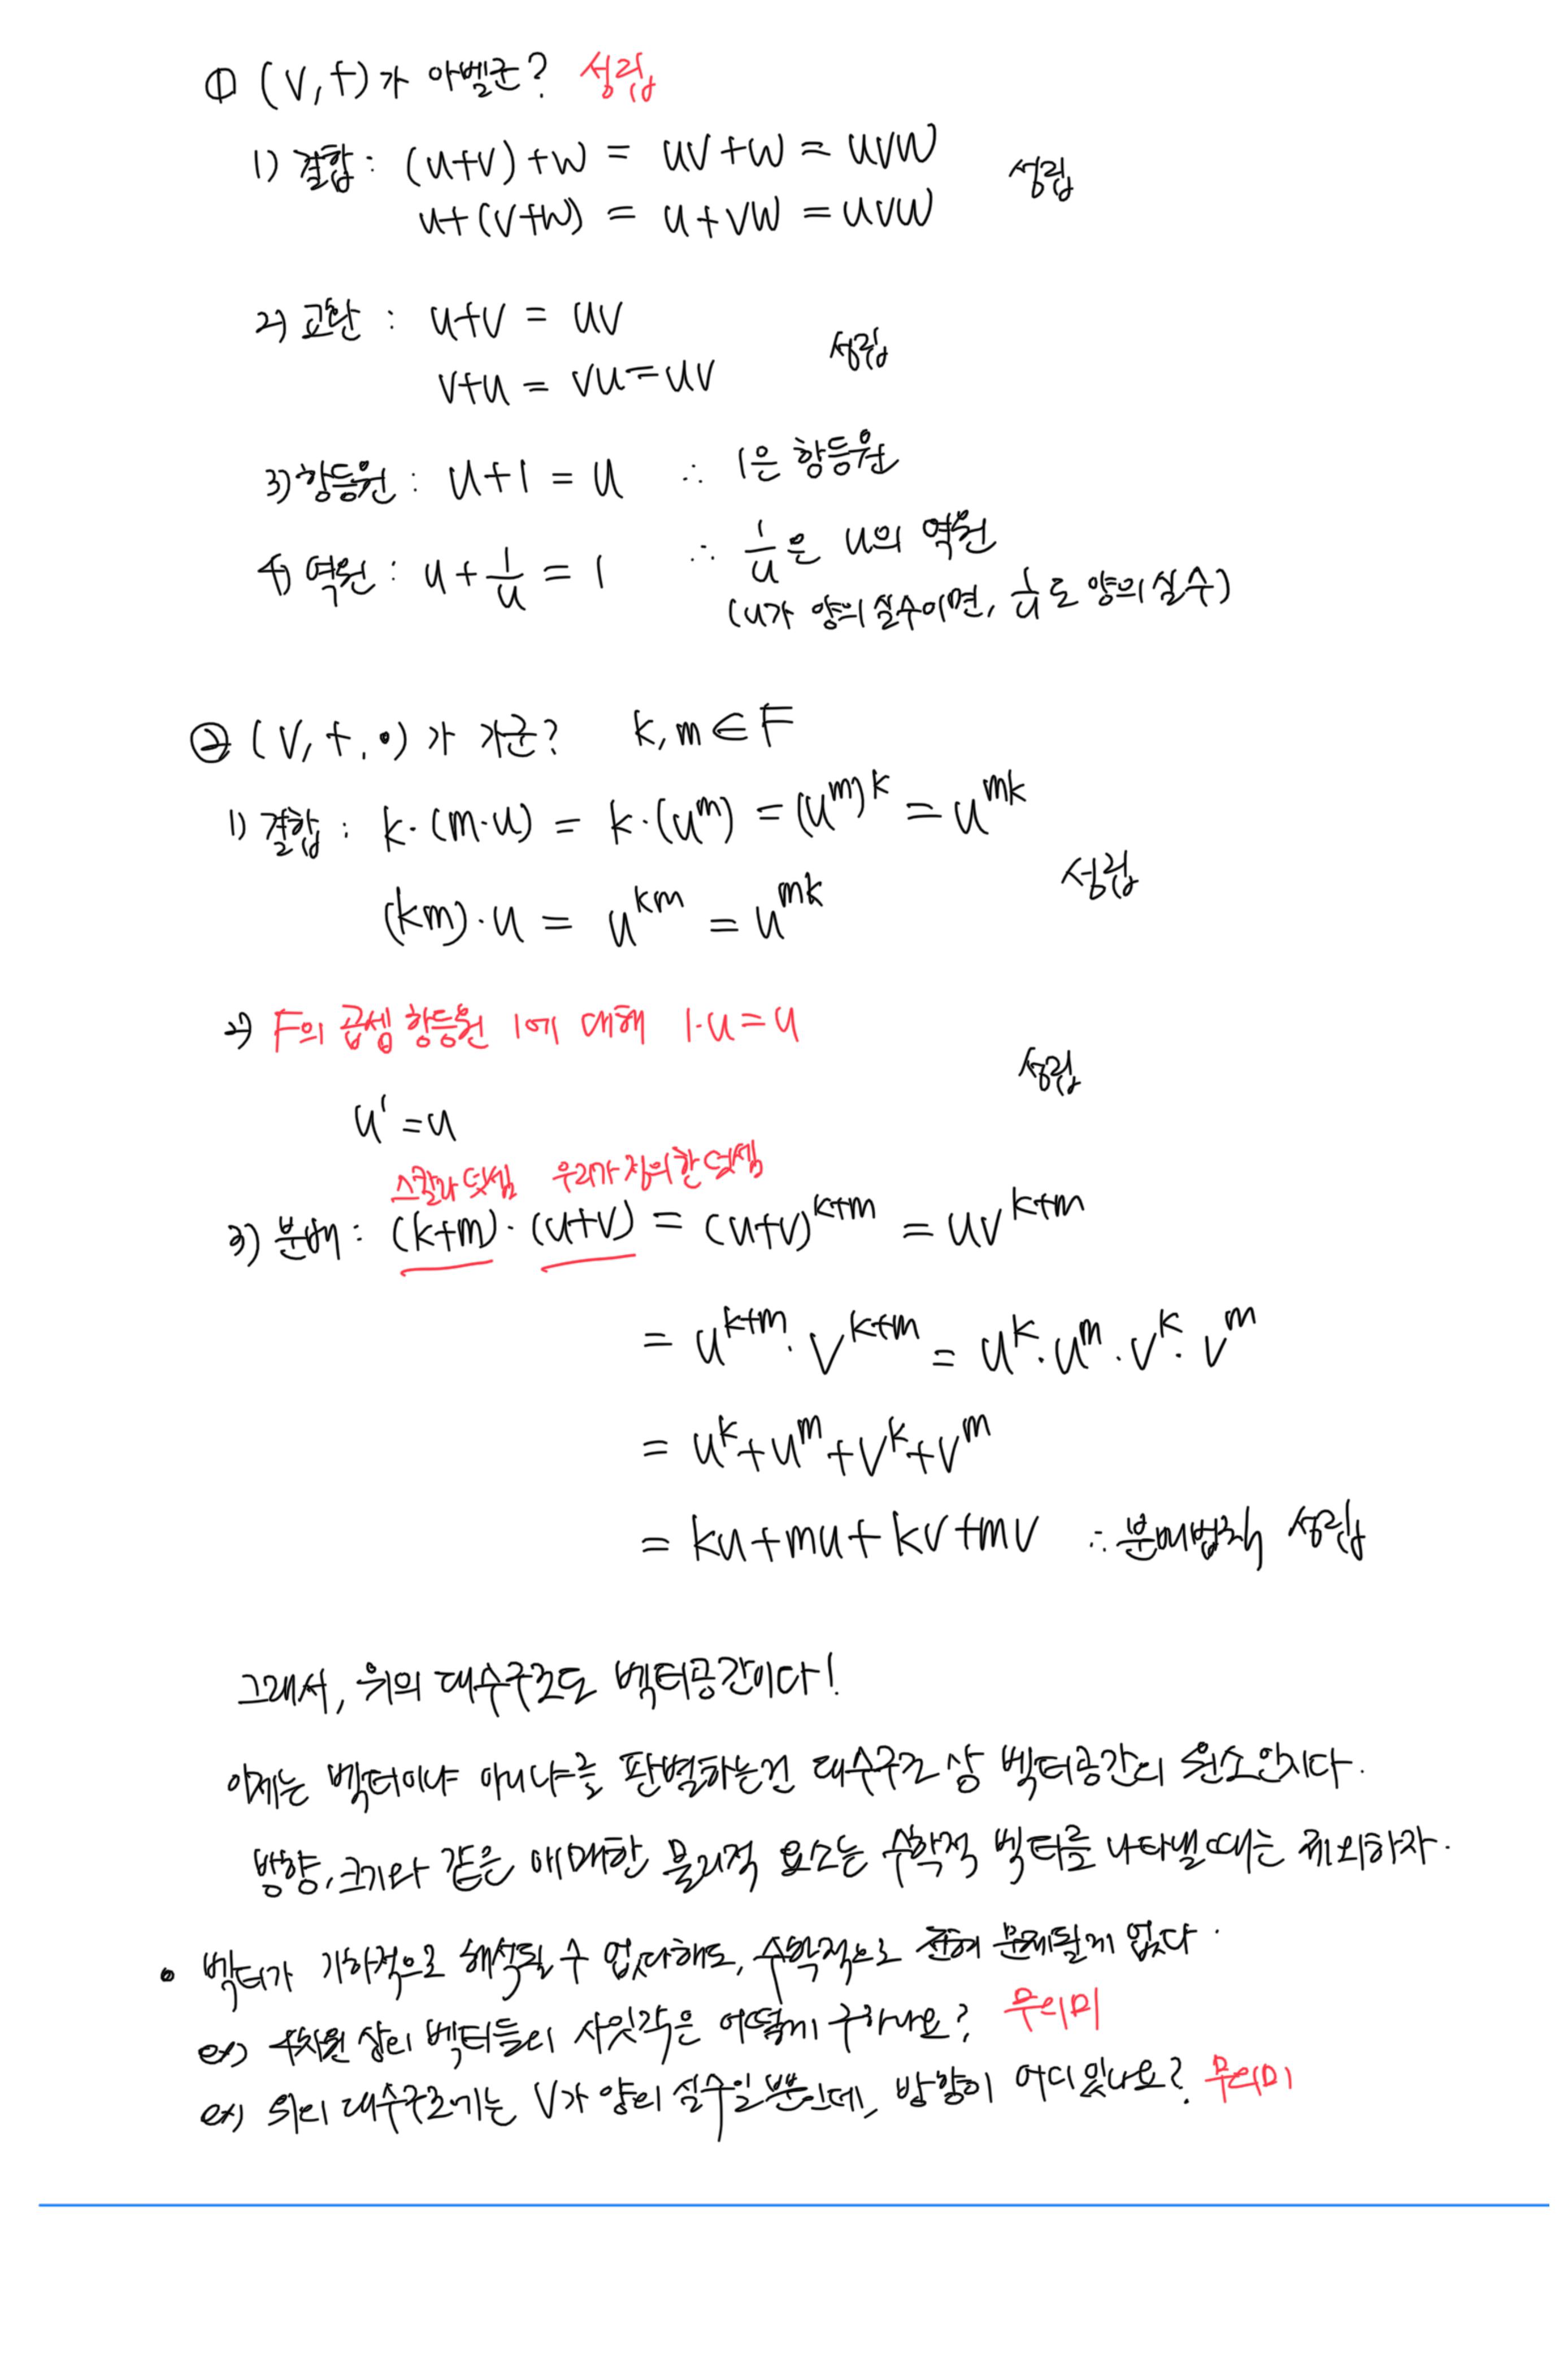 ① (V, +)가 아벨군? 성립
1) 결합 : (u+v)+w = uv+w = uvw
성립
u+(v+w) = u+vw = uvw
2) 교환 : u+v = uv
성립
v+u = vu = uv
3) 항등원 : u+1 = u ∴ 1은 항등원
4) 역원 : u+1/u = 1 ∴ 1/u은 u의 역원
(u가 양의 실수이면, 1/u도 양의 실수)
② (V, +, •)가 가군? k, m ∈ F
1) 결합 : k·(m·u) = k·(u^m) = (u^m)^k = u^mk
성립
(km)·u = u^km = u^mk
2) F의 곱셈 항등원 1에 대해 1·u = u
성립
u^1 = u
스칼라 덧셈 우리가 정의한 덧셈
3) 분배 : (k+m)·(u+v) = (u+v)^k+m = uv^k+m
= u^k+m · v^k+m = u^k · u^m · v^k · v^m
= u^k + u^m + v^k + v^m
= ku+mu+kv+mv ∴ 분배법칙 성립
그래서, 위의 대수구조도 벡터공간이다!
이제는 벡터이냐 아니냐를 판별하는건 대수구조 상 벡터공간의 원소인지다.
방향, 크기와 같은 애매한 물리적 요소는 수학적 벡터를 나타낼때는 제외하자.
• 벡터가 기하적으로 해석될 수 없다해도, 수학적으로 전혀 문제될게 없다.
ex) 4차원 상의 벡터들의 사잇각은 어떻게 구하나요? 무의미
ex) 위의 대수구조에는 V가 양의 실수일 뿐인데, 방향이 어디 있나요? 무의미